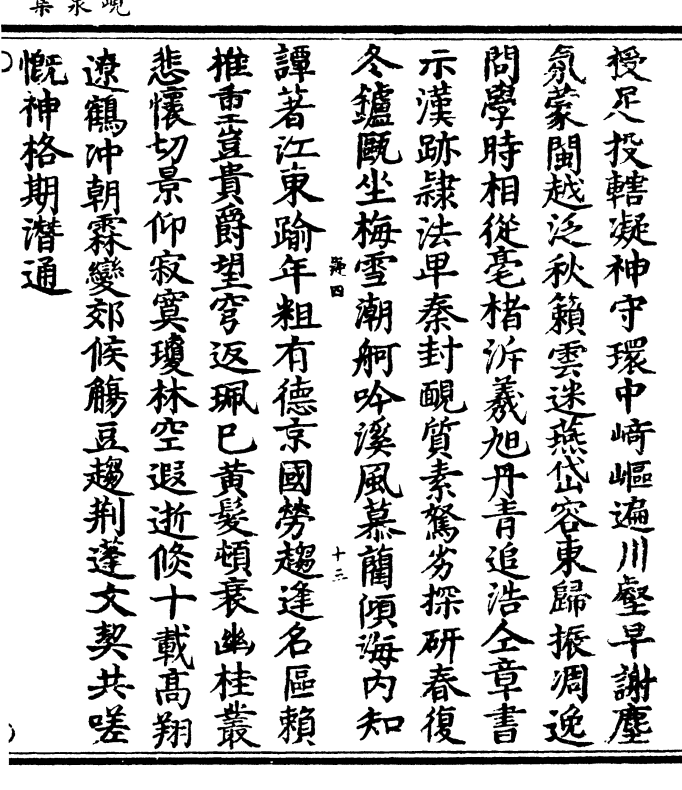 峴泉集
授足投轄凝神守環中﨑嶇遍川壑早謝塵
氛蒙閩越泛秋籟雲迷燕岱容東歸振凋逸
問學時相從毫楮泝羲旭丹青追浩仝章書
示漢跡隷法卑秦封靦質素駑劣探硏春復
冬鑪甌坐梅雪潮舸吟溪風慕藺傾海内知
卷四
十三
譚著江東踰年粗有德京國勞趨逢名區賴
推重豈貴爵望穹返珮巳黄髮頓衰幽桂叢
悲懷切景仰寂寞瓊林空遐逝倏十載高翔
遼鶴冲朝霖變郊候觴豆趨荆蓬文契共嗟
慨神格期潛通